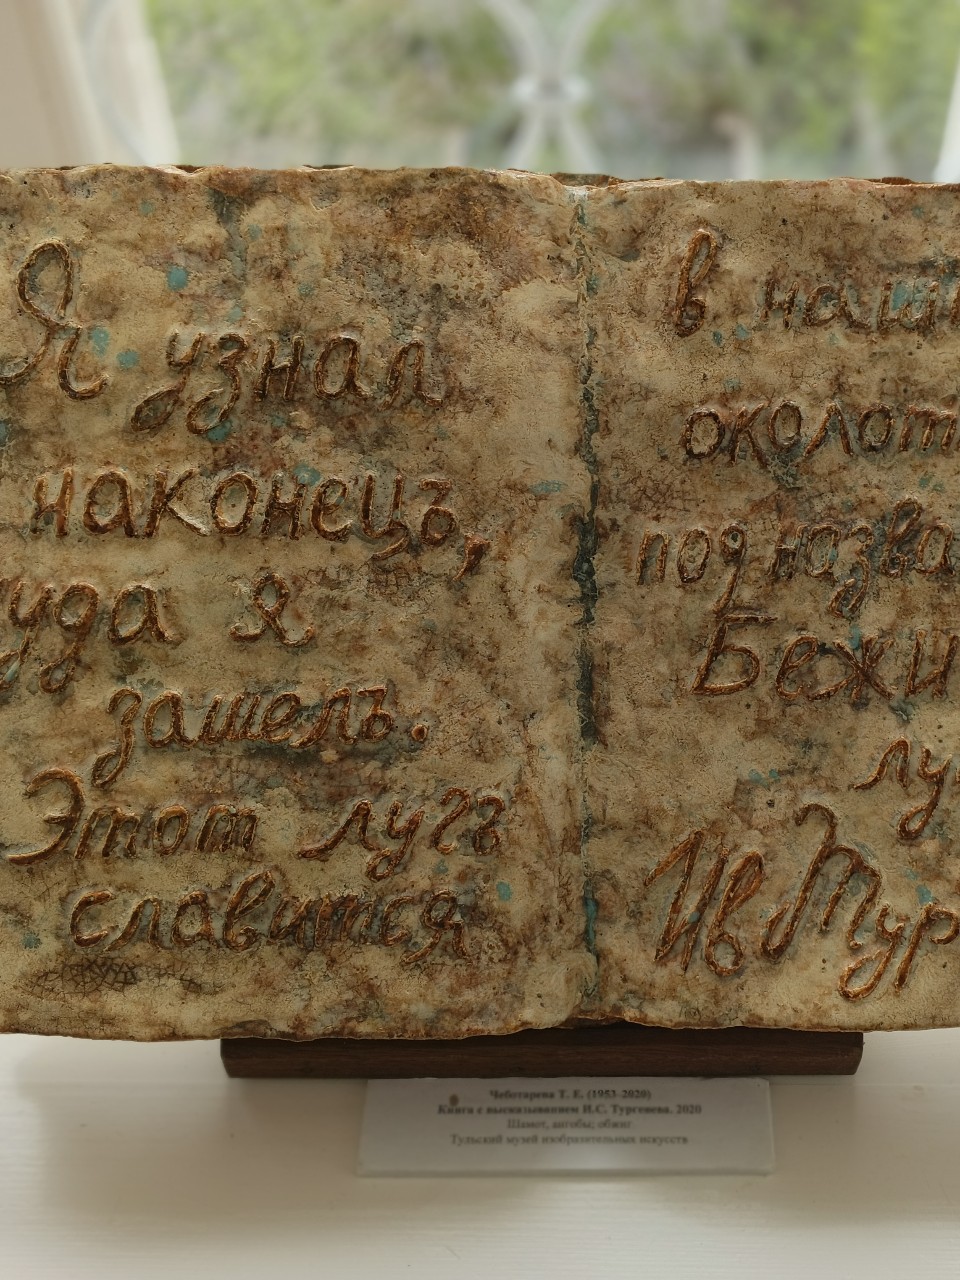 Я узнал
наконецъ,
куда я
зашелъ.
Этот лугъ
славится
в наши
околот
под назва
Бежи
лу
Ив Тур
Чеботарева Т. Е. (1953-2020)
Книга с высказыванием И.С. Тургенева. 2020
Шамот, ангобы; обжиг
Тульский музей изобразительных искусств